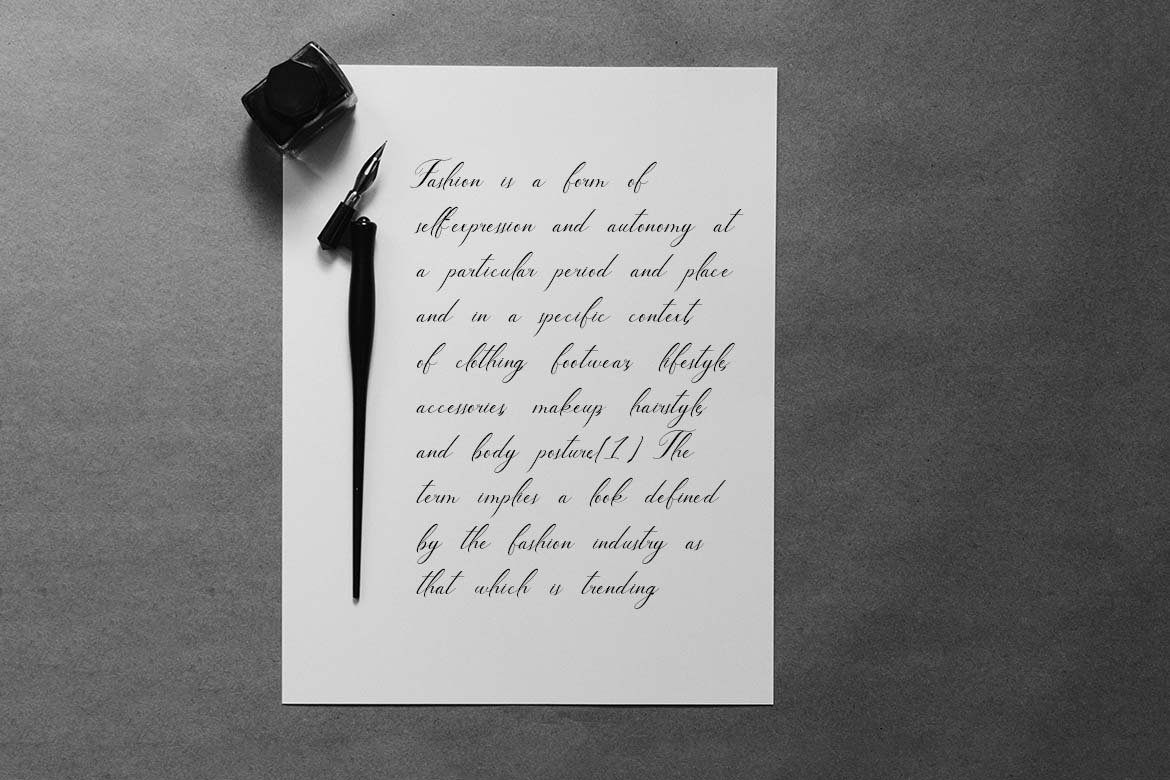 Fashion is a form of
self-expression and autonomy at
a particular period and place
and in a specific context,
of clothing, footwear, lifestyle,
accessories, makeup, hairstyle,
and body posture.[1] The
term implies a look defined
by the fashion industry as
that which is trending.